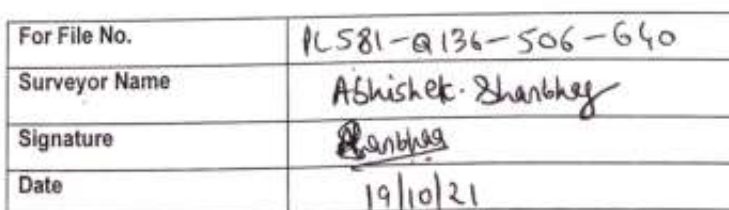 For File No. PL581-Q136-506-640
Surveyor Name Abhishek. Shanbhag
Signature Shanbhag
Date 19/10/21